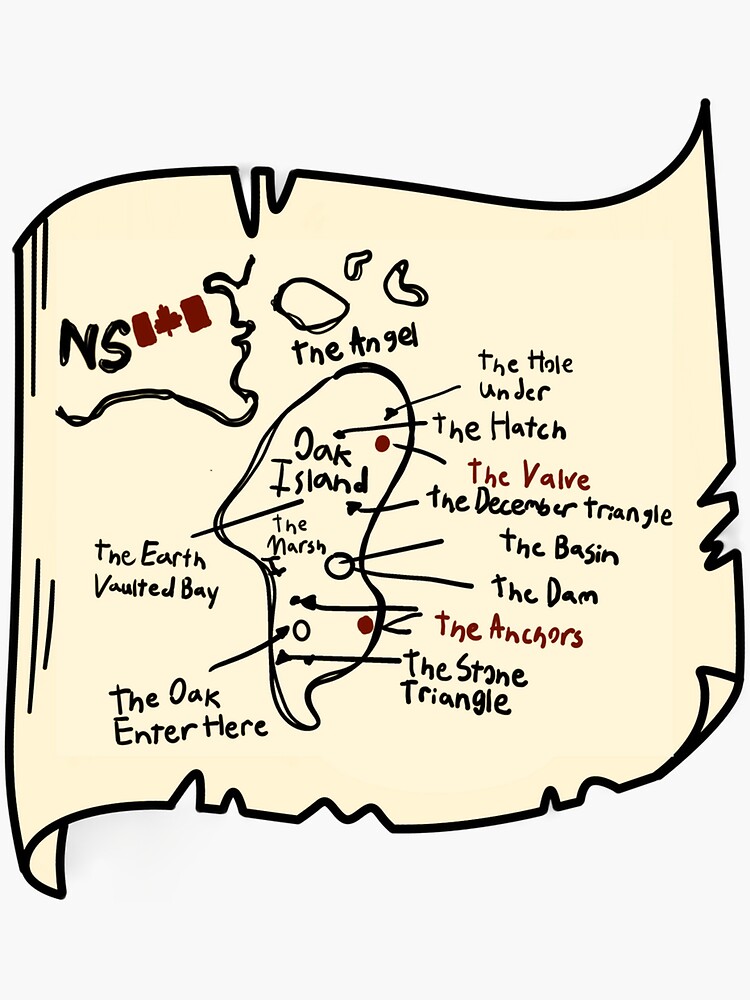 NS
the Angel
the Hole
under
the Hatch
Oak
Island
the Valve
the December triangle
the
Marsh
the Basin
the Earth
Vaulted Bay
the Dam
the Anchors
the Stone
triangle
the Oak
Enter Here